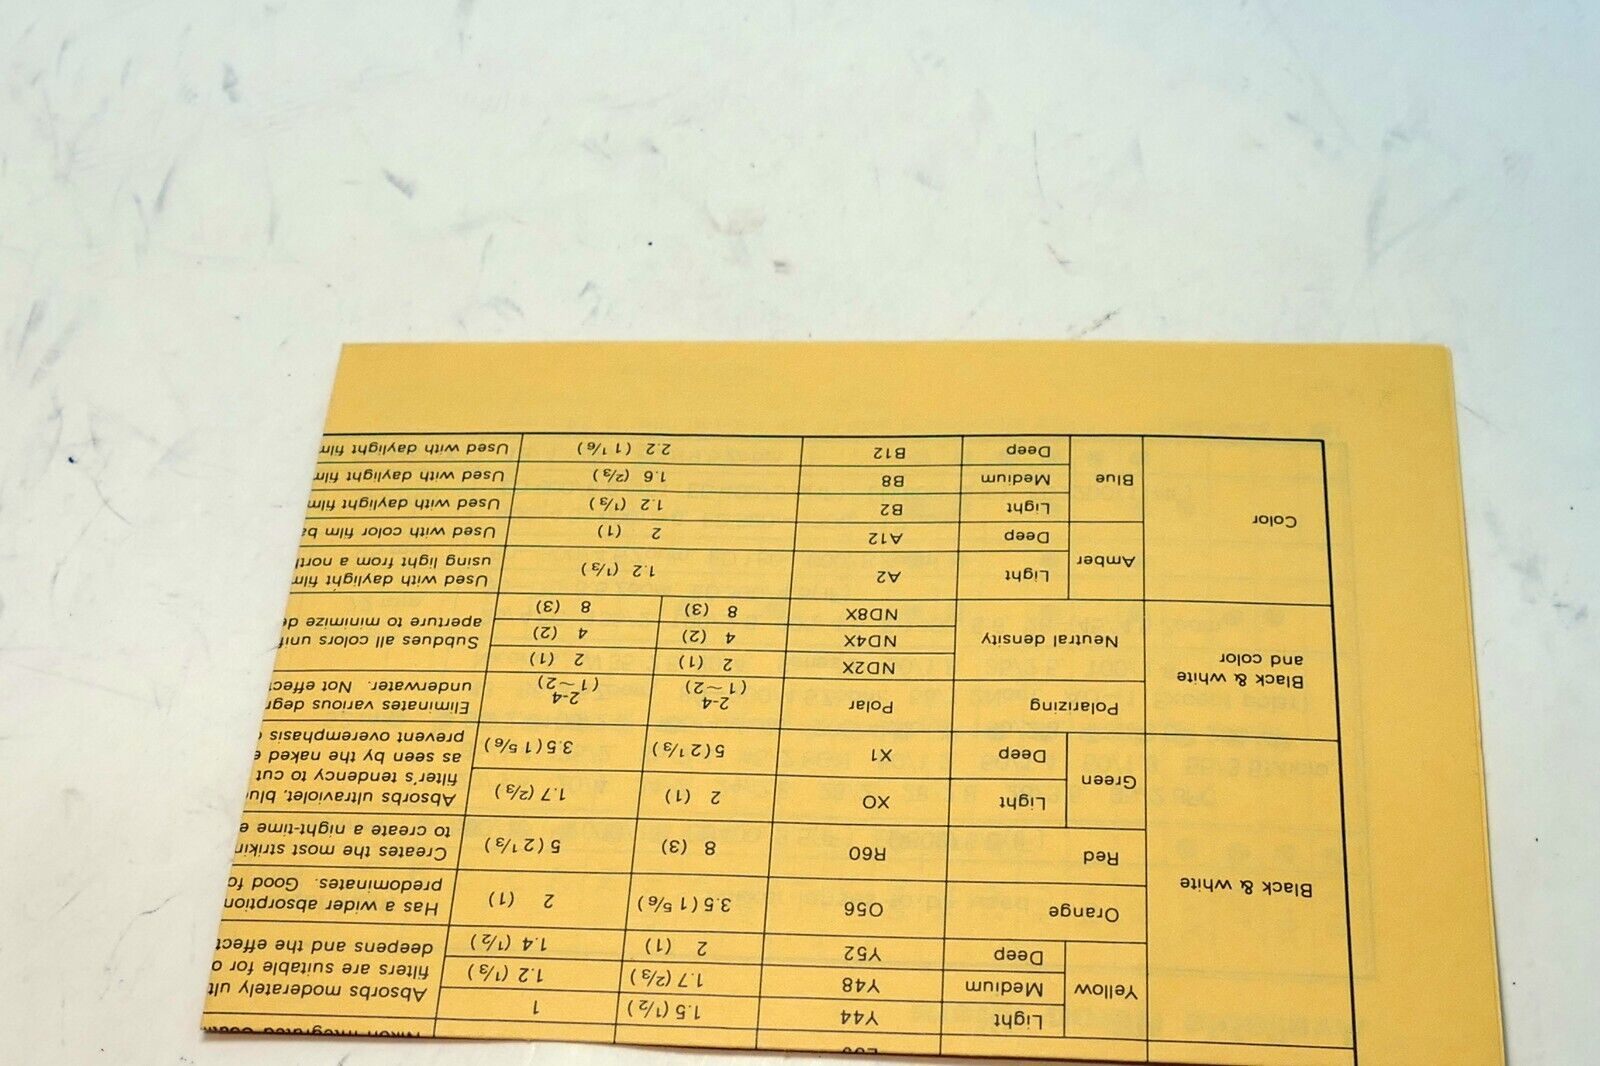 Black & white
Yellow Light Y44 1.5 (1/2) 1 Absorbs moderately
Medium Y48 1.7 (2/3) 1.2 (1/3) filters are suitable for
Deep Y52 2 (1) 1.4 (1/2) deepens and the effect
Orange O56 3.5 (1 5/6) 2 (1) Has a wider absorption
predominates. Good
Red R60 8 (3) 5 (2 1/3) Creates the most
to create a night-time
Green Light XO 2 (1) 1.7 (2/3) Absorbs ultraviolet,
filter's tendency to cut
Deep X1 5 (2 1/3) 3.5 (1 5/6) as seen by the naked
prevent overemphasis
Black & white
and color
Polarizing Polar 2-4 2-4 Eliminates various
(1~2) (1~2) underwater. Not
Neutral density ND2X 2 (1) 2 (1) Subdues all colors
ND4X 4 (2) 4 (2) aperture to minimize
ND8X 8 (3) 8 (3)
Color
Amber Light A2 1.2 (1/3) Used with daylight film
using light from a north
Deep A12 2 (1) Used with color film
Blue Light B2 1.2 (1/3) Used with daylight film
Medium B8 1.6 (2/3) Used with daylight film
Deep B12 2.2 (1 1/6) Used with daylight film